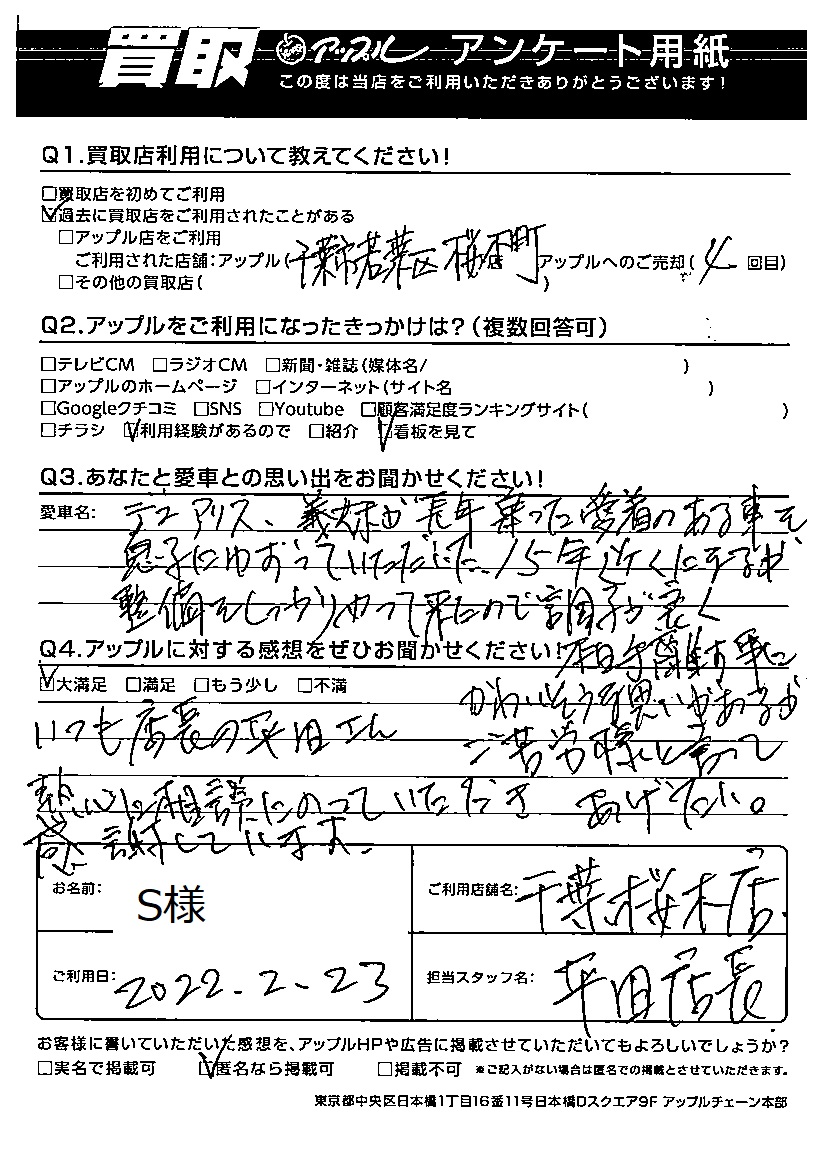 買取 アップル アンケート用紙
この度は当店をご利用いただきありがとうございます!
Q1.買取店利用について教えてください!
□買取店を初めてご利用
☑過去に買取店をご利用されたことがある
□アップル店をご利用
ご利用された店舗:アップル(千葉市若葉区桜木町店 アップルへのご売却(4 回目)
□その他の買取店( )
Q2.アップルをご利用になったきっかけは?(複数回答可)
□テレビCM □ラジオCM □新聞・雑誌(媒体名/ )
□アップルのホームページ □インターネット(サイト名 )
□Googleクチコミ □SNS □Youtube □顧客満足度ランキングサイト( )
□チラシ ☑利用経験があるので □紹介 ☑看板を見て
Q3.あなたと愛車との思い出をお聞かせください!
愛車名: デュアリス、義妹が長年乗った愛着のある車を、
息子にゆずっていただいた、15年近くにするが
整備をしっかりやって来たので調子が良く
本日手離す車に
かわいそうな思いがあるが
ご苦労様と言って
あげたい。
Q4.アップルに対する感想をぜひお聞かせください!
☑大満足 □満足 □もう少し □不満
いつも店長の平田さん
熱心に相談にのっていただき
感謝しています。
お名前: S様
ご利用店舗名: 千葉桜木店
ご利用日: 2022.2.23
担当スタッフ名: 平田店長
お客様に書いていただいた感想を、アップルHPや広告に掲載させていただいてもよろしいでしょうか?
□実名で掲載可 ☑匿名なら掲載可 □掲載不可 ※ご記入がない場合は匿名での掲載とさせていただきます。
東京都中央区日本橋1丁目16番11号日本橋Dスクエア9F アップルチェーン本部